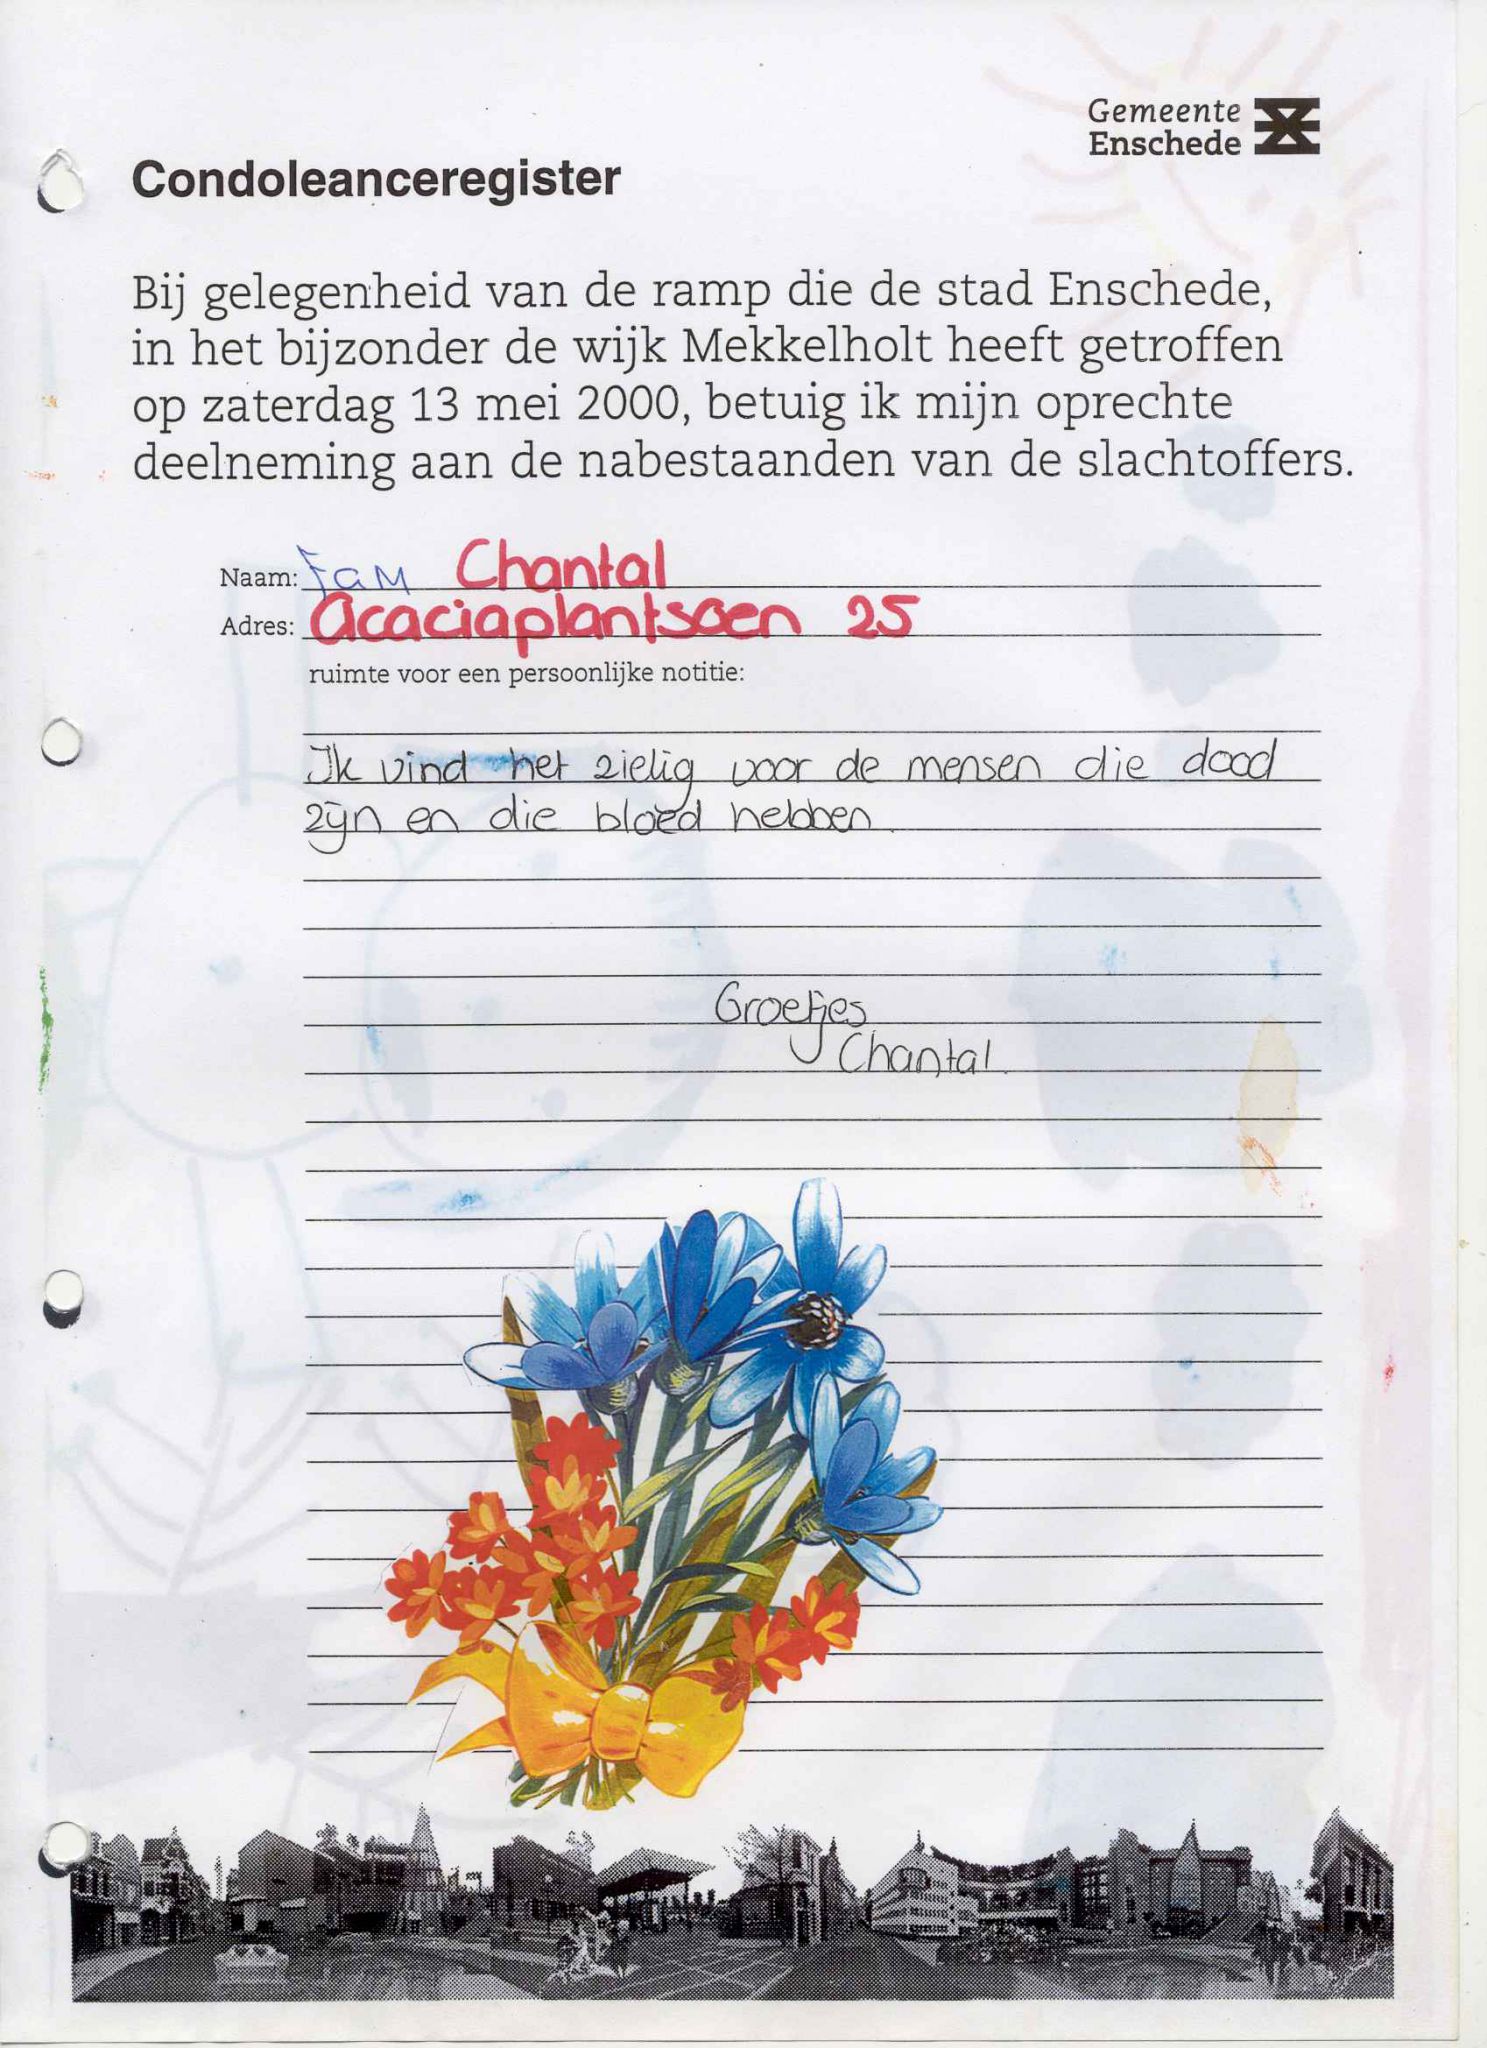 Gemeente
Enschede
Condoleanceregister
Bij gelegenheid van de ramp die de stad Enschede,
in het bijzonder de wijk Mekkelholt heeft getroffen
op zaterdag 13 mei 2000, betuig ik mijn oprechte
deelneming aan de nabestaanden van de slachtoffers.
Naam: Fam Chantal
Adres: Acaciaplantsoen 25
ruimte voor een persoonlijke notitie:
Ik vind het zielig voor de mensen die dood
zijn en die bloed hebben.
Groetjes
Chantal.